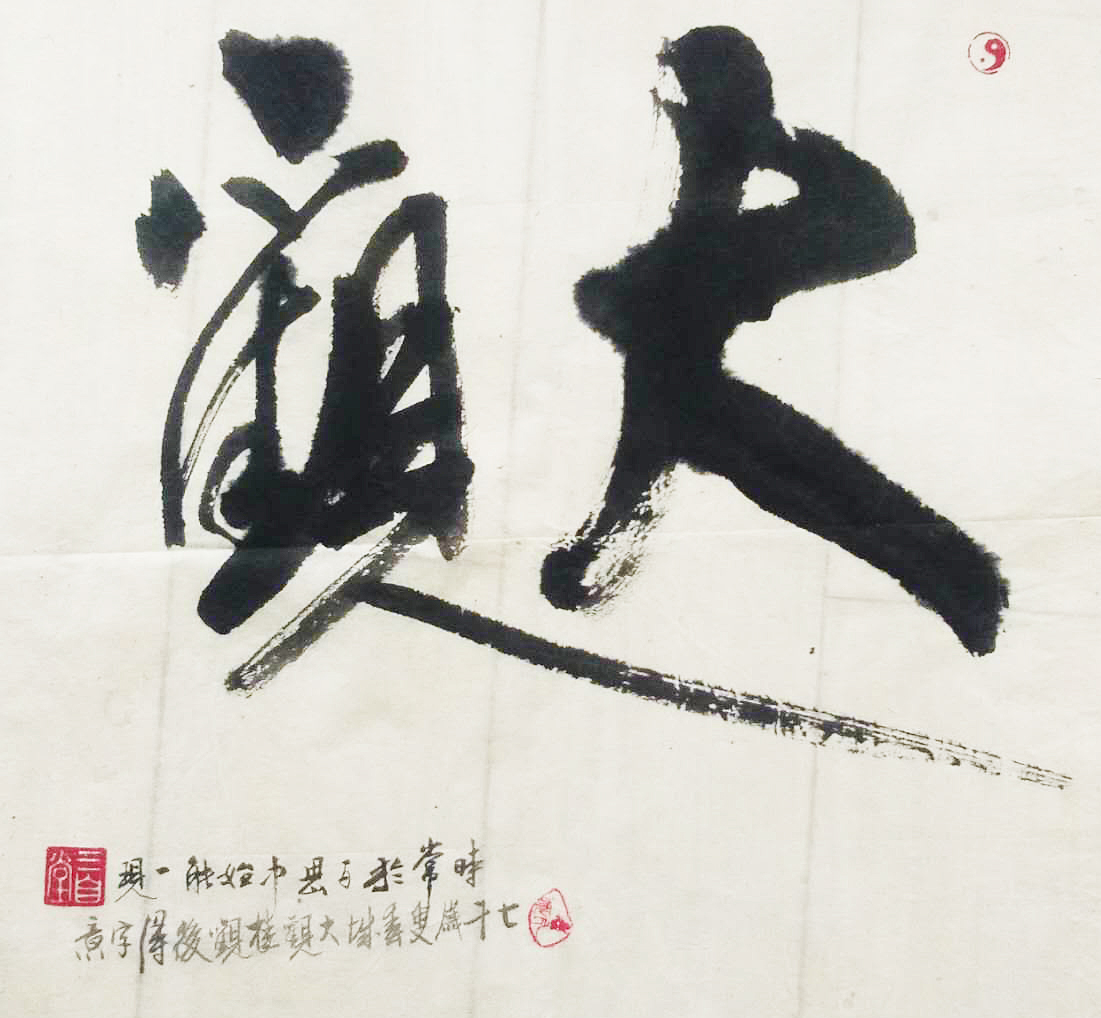 大觀
時常於思中始能一現
七十歲叟大觀樓觀後得字意
三自堂